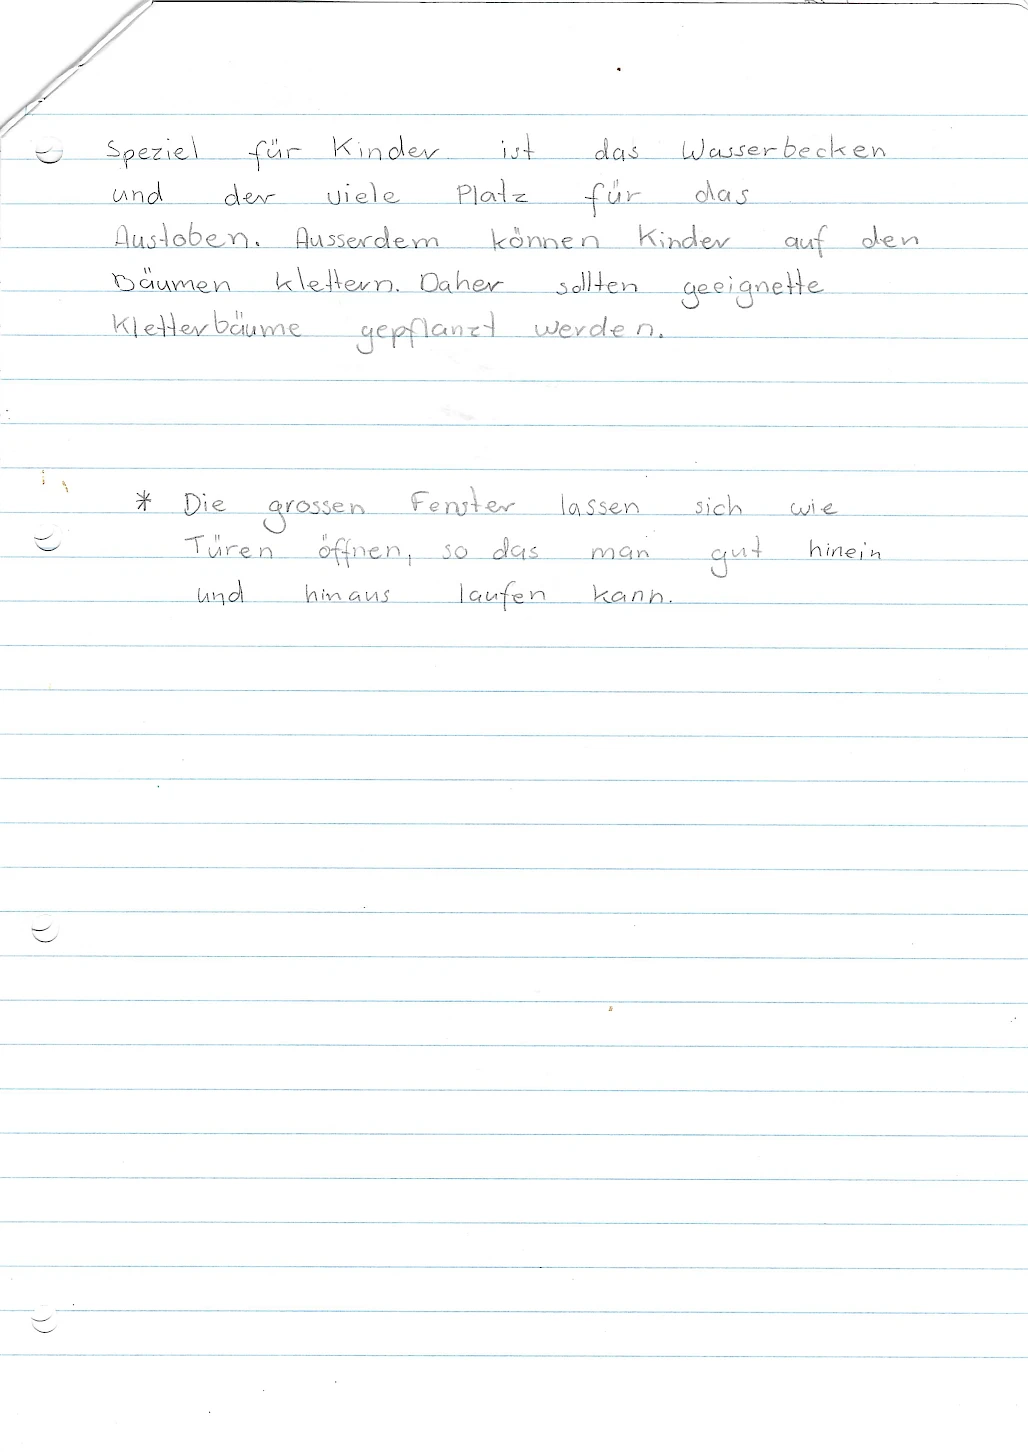 Speziel für Kinder ist das Wasserbecken
und der viele Platz für das
Austoben. Ausserdem können Kinder auf den
Bäumen klettern. Daher sollten geeignette
Kletterbäume gepflanzt werden.
* Die grossen Fenster lassen sich wie
Türen öffnen, so das man gut hinein
und hinaus laufen kann.